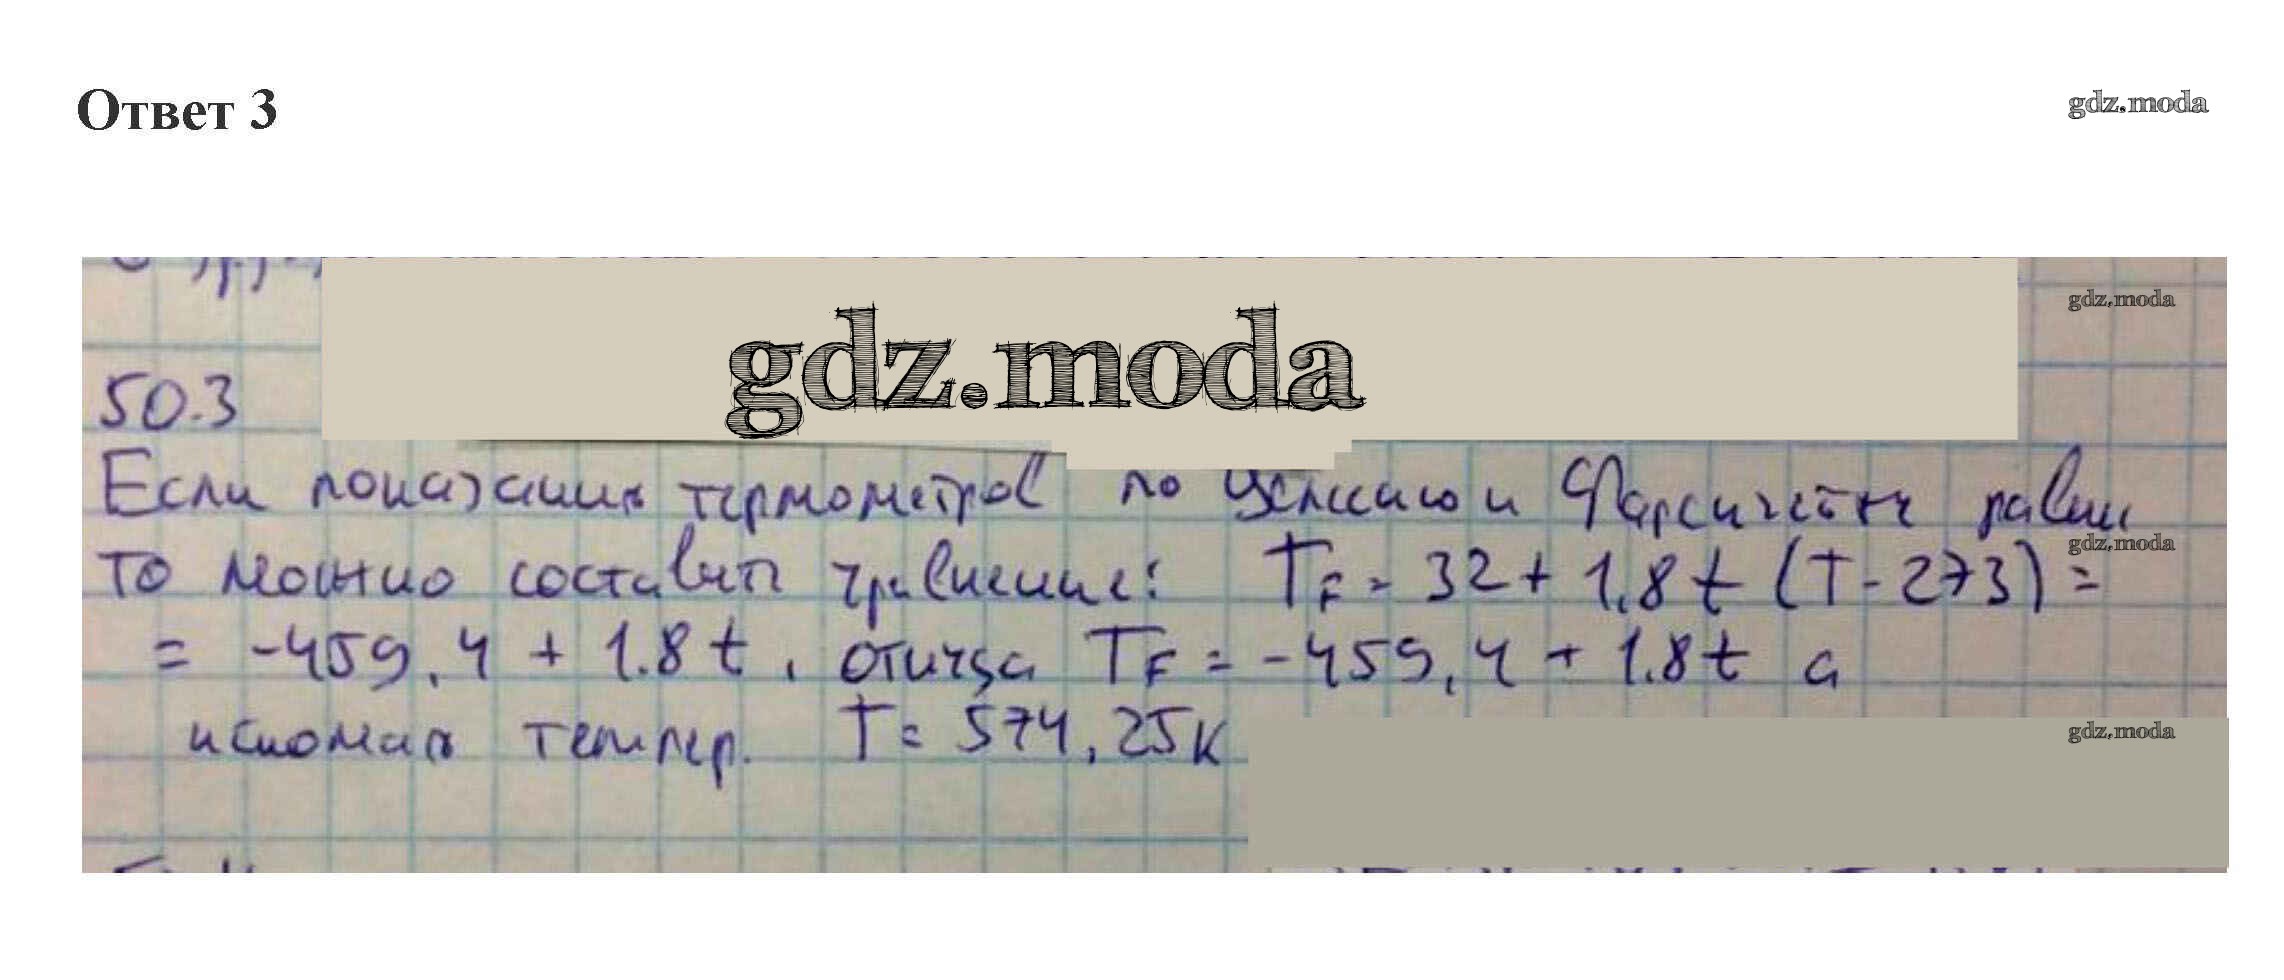 Ответ 3
gdz.moda
gdz.moda
gdz.moda
50.3
Если показания термометров по Цельсию и Фаренгейту равны
то можно составить уравнение: T_F = 32 + 1.8 t (T - 273) =
gdz.moda
= -459,4 + 1.8 t, откуда T_F = -459,4 + 1.8 t а
искомая темпер. T = 574,25 К
gdz.moda